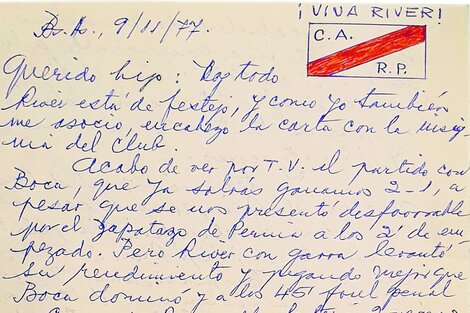 ¡VIVA RIVER!
Bs. As, 9/11/77.
C. A.
R. P.
Querido hijo: Hoy todo
River está de festejo, y como yo también
me asocio, encabezo la carta con la insig-
nia del Club.
Acabo de ver por T.V. el partido con
Boca, que ya sabrás ganamos 2-1, a
pesar que se nos presentó desfavorable
por el zapatazo de Pernia a los 2' de em-
pezado. Pero River con garra levantó
su rendimiento y jugando mejor que
Boca dominó y a los 45' foul penal